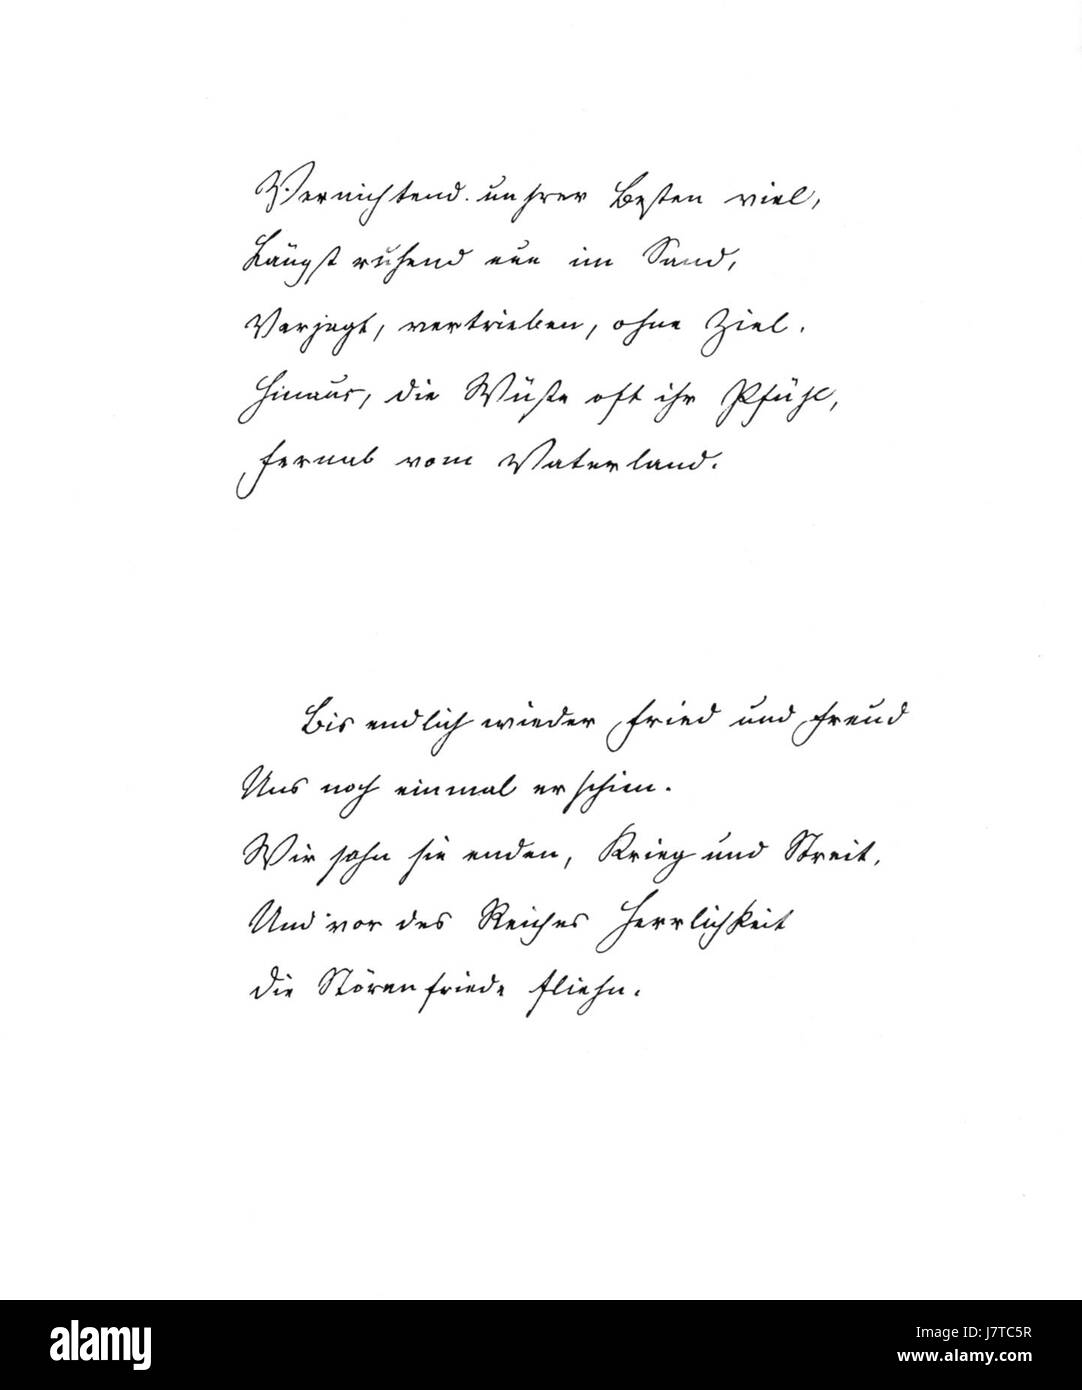 Vernichtend unsrer Besten viel,
Längst ruhend nun im Sand,
Verjagt, vertrieben, ohne Ziel.
Hinaus, die Wüste oft ihr Pfühl,
fernab vom Vaterland.
Bis endlich wieder Fried und Freud
Uns noch einmal erschien.
Wir sahn sie enden, Krieg und Streit,
Und vor des Reiches Herrlichkeit
die Störenfriede fliehn.
alamy
alamy
Image ID: J7TC5R
www.alamy.com